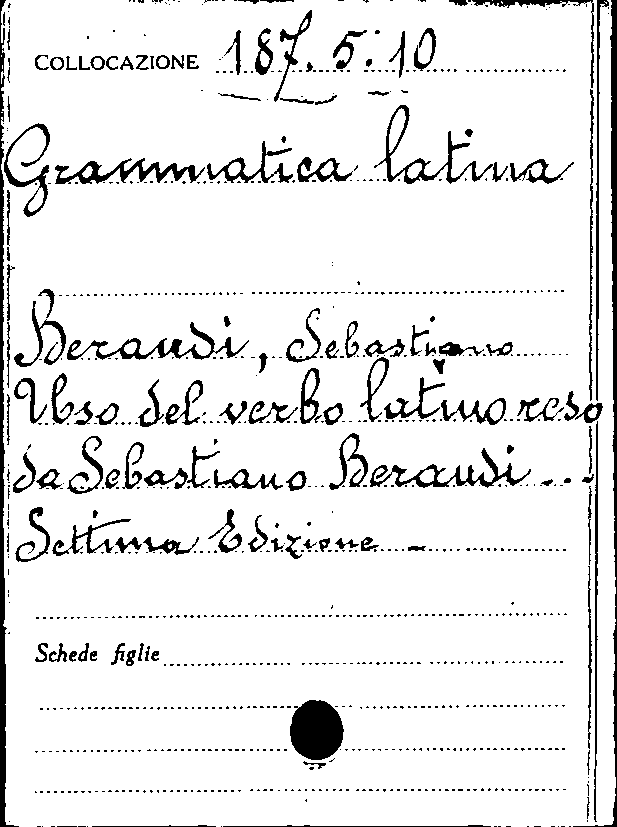 COLLOCAZIONE 187. 5. 10
Grammatica latina
Beraudi, Sebastiano
Uso del verbo latino reso
da Sebastiano Beraudi ...
Settima Edizione -
Schede figlie